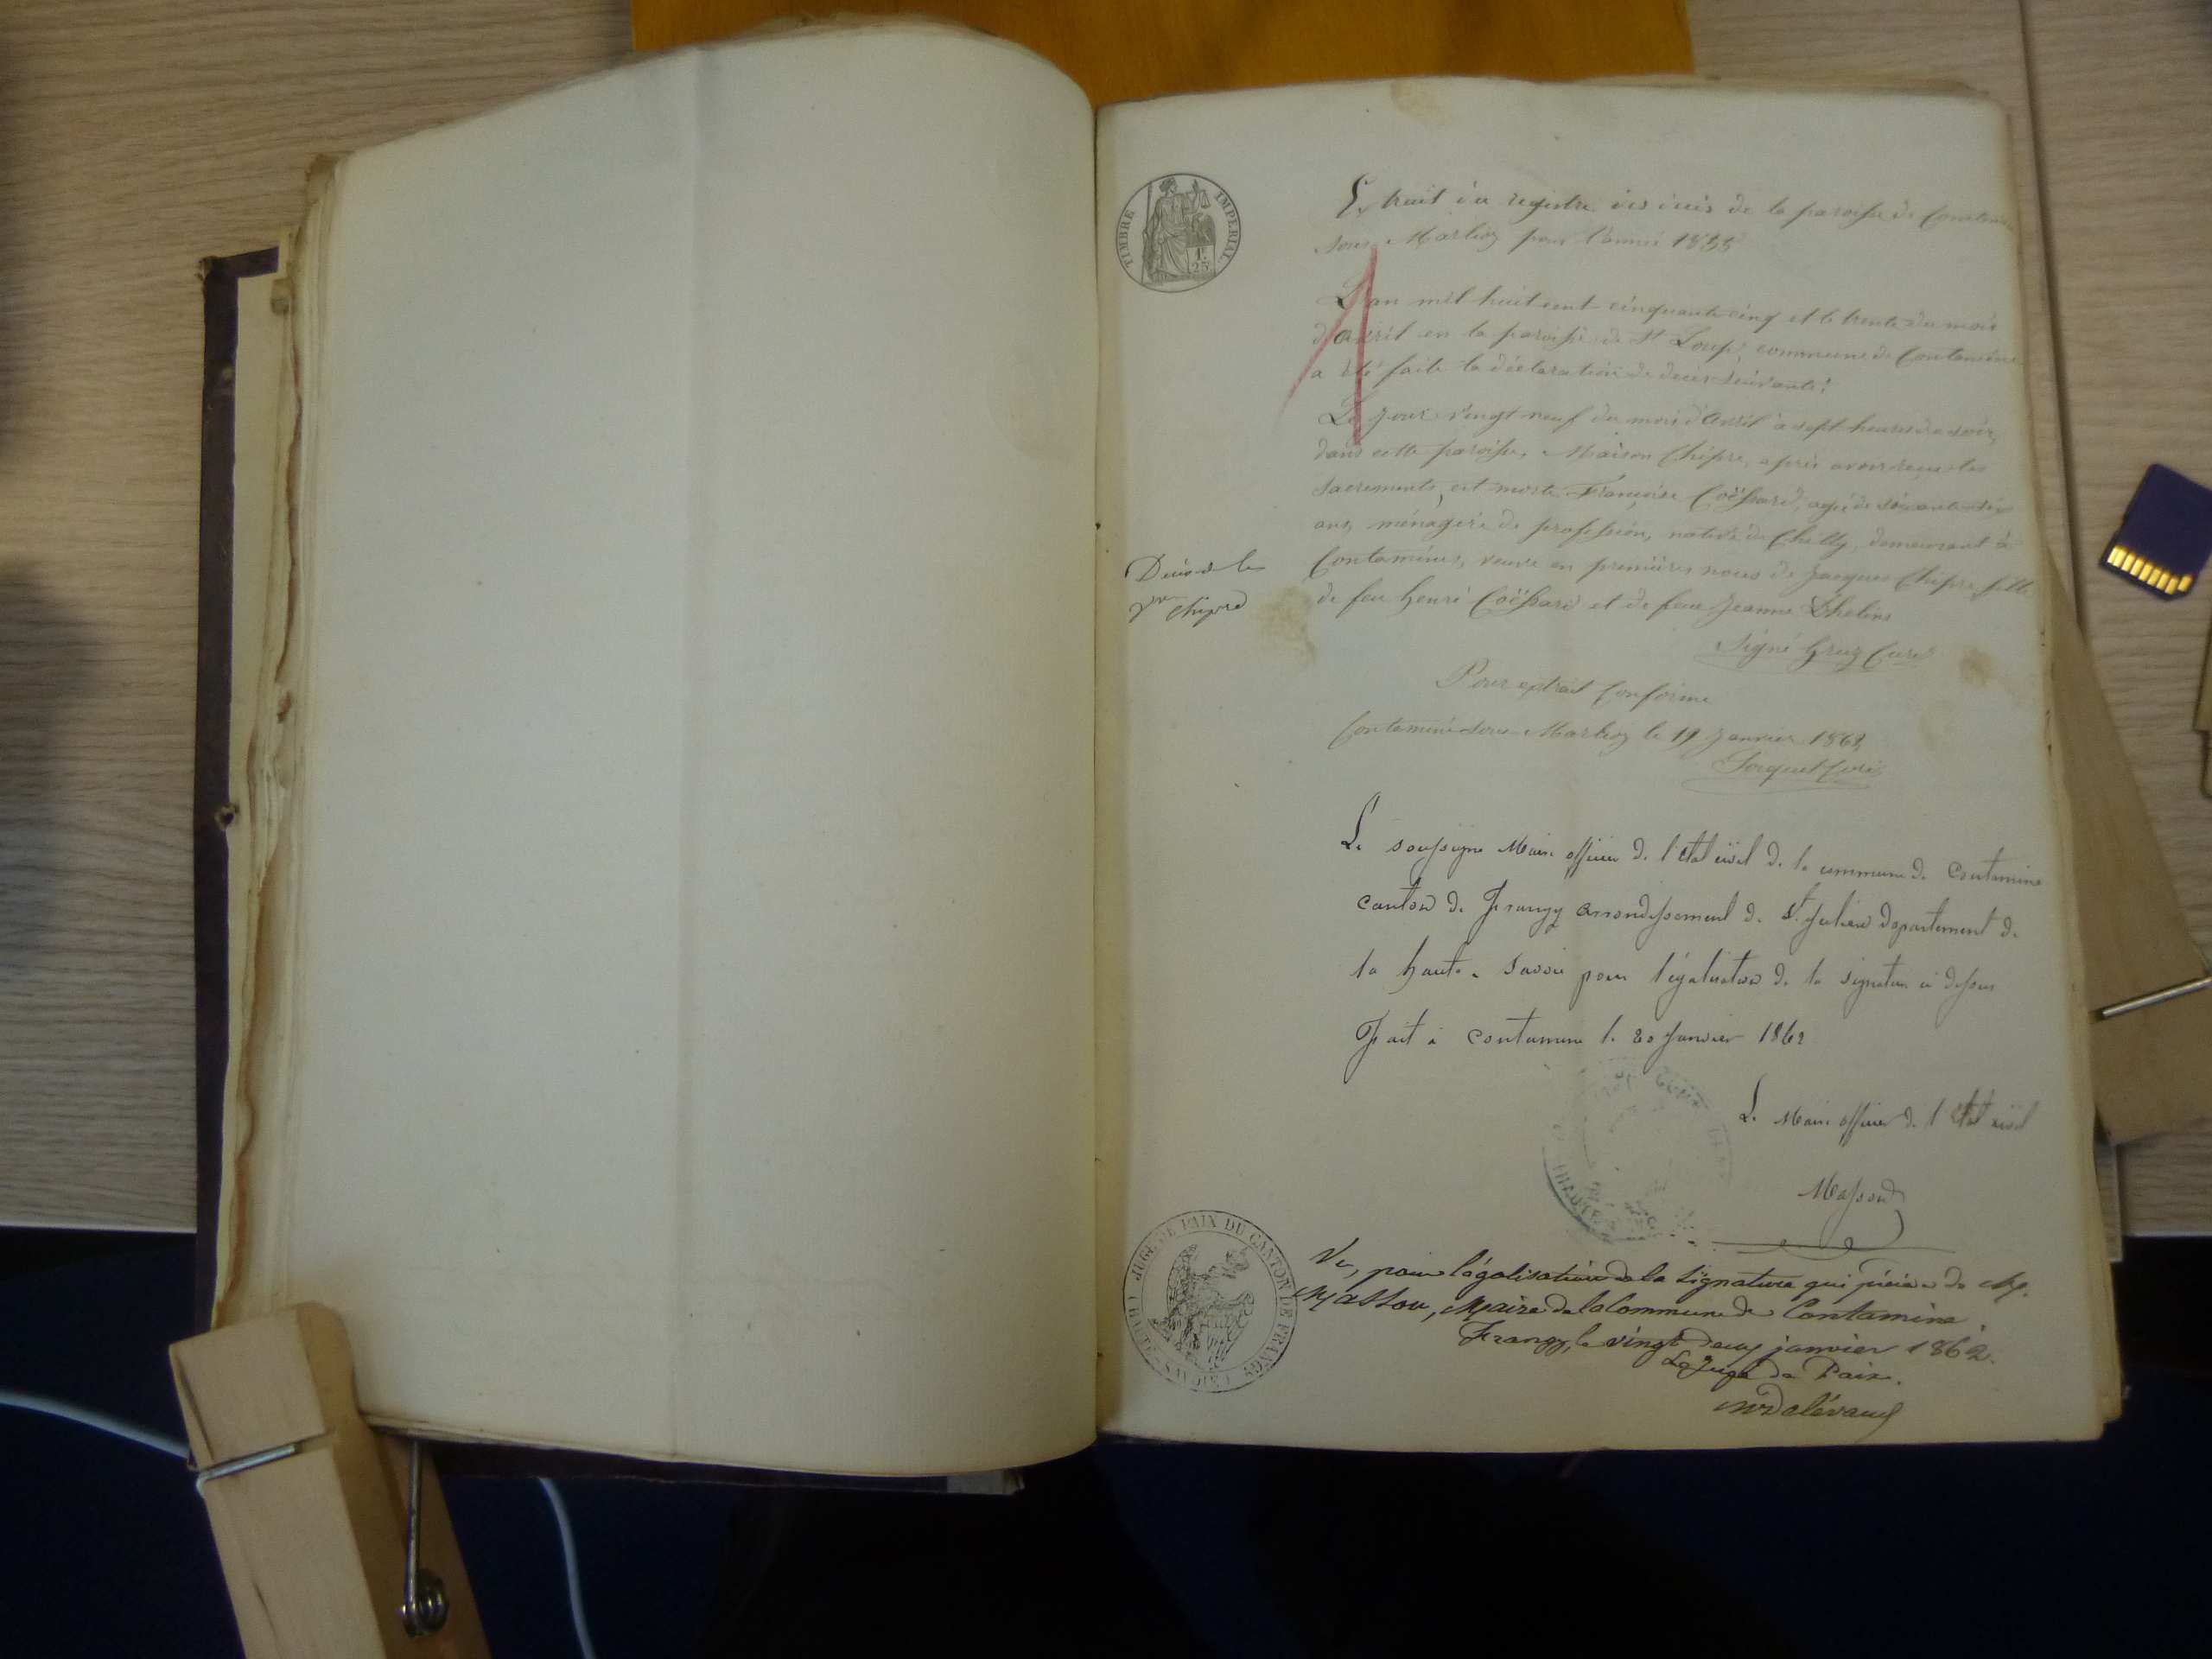 TIMBRE IMPERIAL
1f.
25c
Extrait du registre des décès de la paroisse de Contamine
sous Marlioz pour l'année 1855
L'an mil huit cent cinquante cinq et le trente du mois
d'avril en la paroisse de St Loup, commune de Contamine
a été faite la déclaration de décès suivante:
Le jour vingt neuf du mois d'Avril à sept heures du soir,
dans cette paroisse, Maison Chipre, après avoir reçu les
Sacrements, est morte Françoise agée de soixante six
ans, ménagère de profession, native de Chilly, demeurant à
Contamine, veuve en premières noces de Jacques Chipre fille
de feu henri et de feue Jeanne
Décès de la
Chipre
Signé Gruz Curé
Pour extrait Conforme
Contamine sous Marlioz le 19 Janvier 1862
Curé
Le soussigné Maire officier de l'état civil de la commune de Contamine
canton de Frangy arrondissement de St Julien departement de
la haute-Savoie pour légalisation de la signature ci dessus
Fait à contamine le 20 Janvier 1862
Le Maire officier de l'Etat civil
Masson
JUGE DE PAIX DU CANTON DE FRANGY (HAUTE-SAVOIE)
Vu, pour légalisation de la signature qui précède de M.
Masson, Maire de la Commune de Contamine.
Frangy, le vingt deux janvier 1862.
Le Juge de Paix.